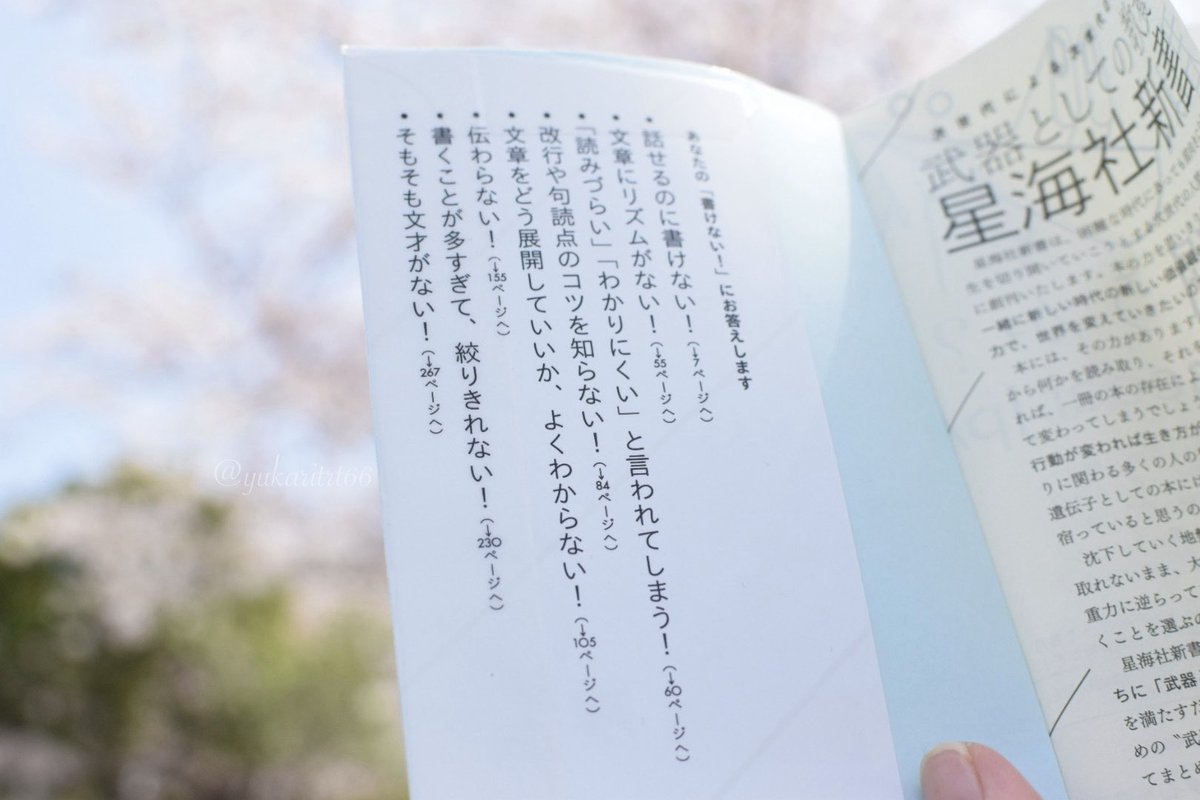 あなたの「書けない！」にお答えします
• 話せるのに書けない！（→7ページへ）
• 文章にリズムがない！（→55ページへ）
• 「読みづらい」「わかりにくい」と言われてしまう！（→60ページへ）
• 改行や句読点のコツを知らない！（→84ページへ）
• 文章をどう展開していいか、よくわからない！（→105ページへ）
• 伝わらない！（→155ページへ）
• 書くことが多すぎて、絞りきれない！（→230ページへ）
• そもそも文才がない！（→267ページへ）
@yukaritrt66
武器としての
星海社新書
星海社新書は、困難な時代にあっても
生を切り開いていこう
に創刊いたします。本の力
一緒に新しい時代の新しい価値観
力で、世界を変えていきたい
本には、その力があります
から何かを読み取り、それを
れば、一冊の本の存在によ
て変わってしまうでしょ
行動が変われば生き方が
りに関わる多くの人の
遺伝子としての本に
宿っていると思うの
沈下していく地
取れないまま、大
重力に逆らって
くことを選ぶの
星海社新書
ちに「武器
を満たすだ
めの〝武
てまとめ